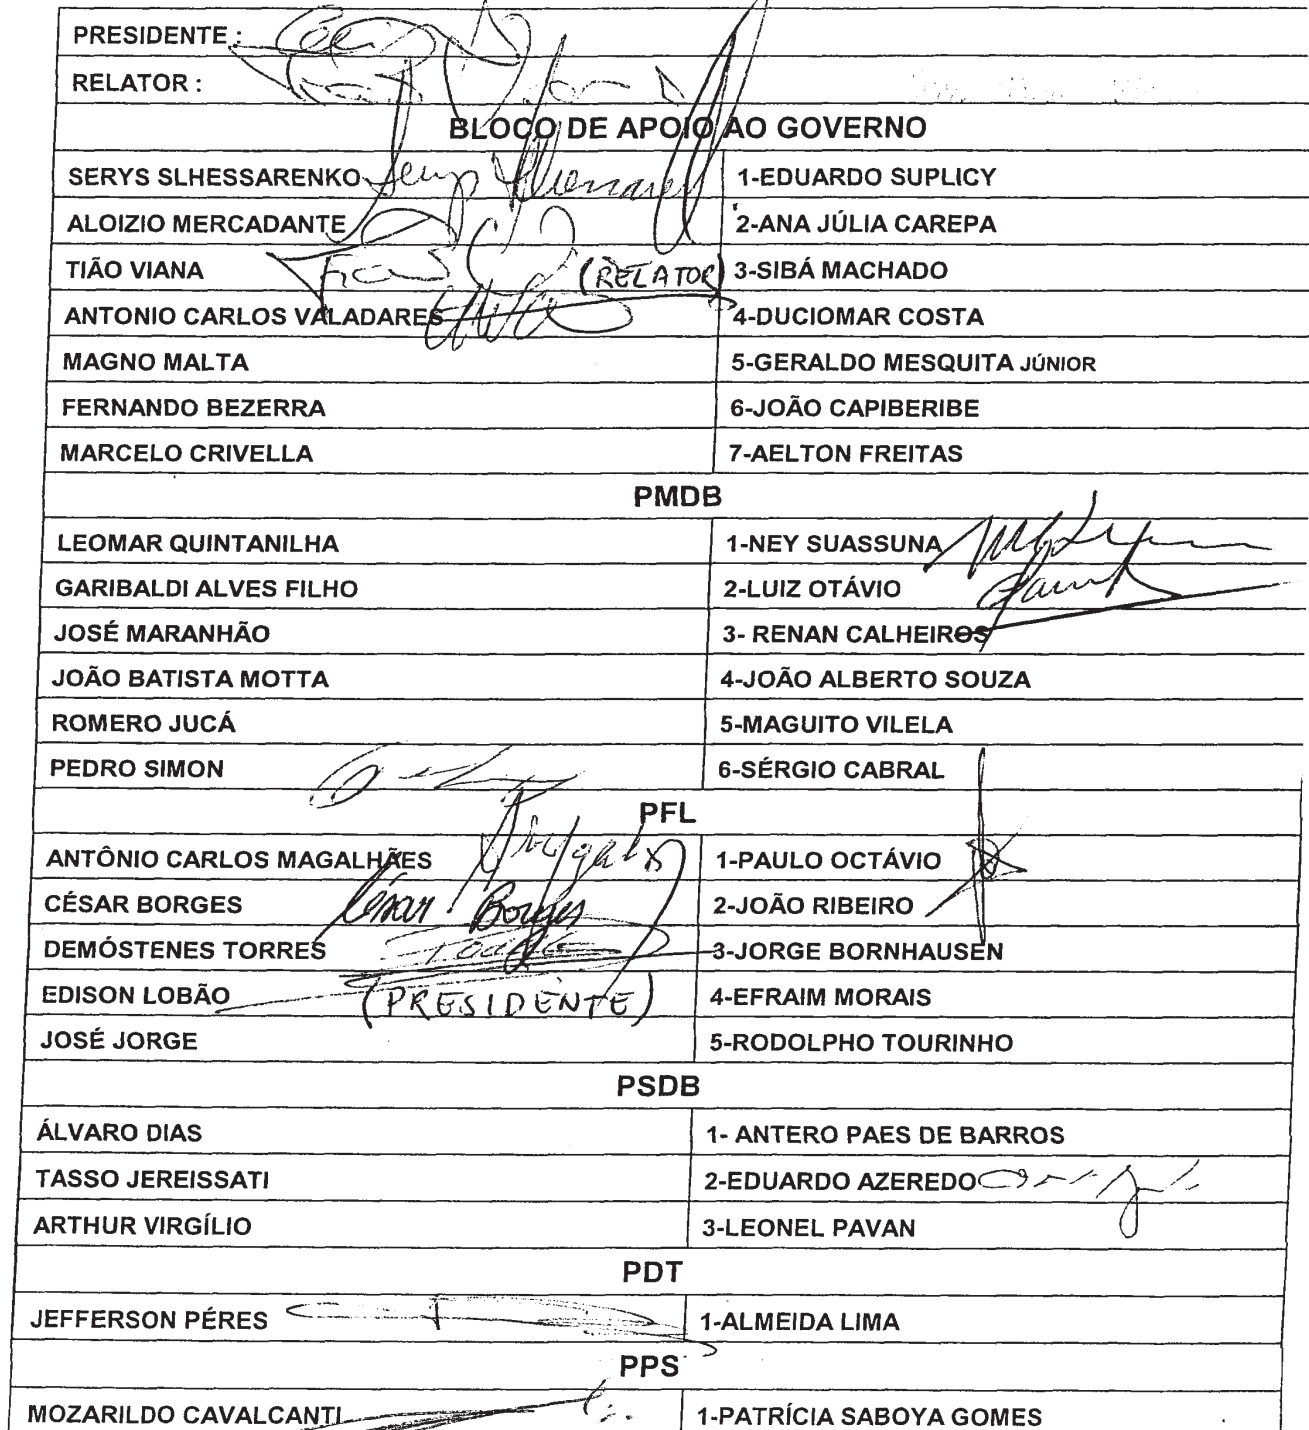 PRESIDENTE :
RELATOR :
BLOCO DE APOIO AO GOVERNO
SERYS SLHESSARENKO Serys Slhessarenko 1-EDUARDO SUPLICY
ALOIZIO MERCADANTE 2-ANA JÚLIA CAREPA
TIÃO VIANA (RELATOR) 3-SIBÁ MACHADO
ANTONIO CARLOS VALADARES 4-DUCIOMAR COSTA
MAGNO MALTA 5-GERALDO MESQUITA JÚNIOR
FERNANDO BEZERRA 6-JOÃO CAPIBERIBE
MARCELO CRIVELLA 7-AELTON FREITAS
PMDB
LEOMAR QUINTANILHA 1-NEY SUASSUNA
GARIBALDI ALVES FILHO 2-LUIZ OTÁVIO
JOSÉ MARANHÃO 3- RENAN CALHEIROS
JOÃO BATISTA MOTTA 4-JOÃO ALBERTO SOUZA
ROMERO JUCÁ 5-MAGUITO VILELA
PEDRO SIMON 6-SÉRGIO CABRAL
PFL
ANTÔNIO CARLOS MAGALHÃES 1-PAULO OCTÁVIO
CÉSAR BORGES César Borges 2-JOÃO RIBEIRO
DEMÓSTENES TORRES 3-JORGE BORNHAUSEN
EDISON LOBÃO (PRESIDENTE) 4-EFRAIM MORAIS
JOSÉ JORGE 5-RODOLPHO TOURINHO
PSDB
ÁLVARO DIAS 1- ANTERO PAES DE BARROS
TASSO JEREISSATI 2-EDUARDO AZEREDO
ARTHUR VIRGÍLIO 3-LEONEL PAVAN
PDT
JEFFERSON PÉRES 1-ALMEIDA LIMA
PPS
MOZARILDO CAVALCANTI 1-PATRÍCIA SABOYA GOMES